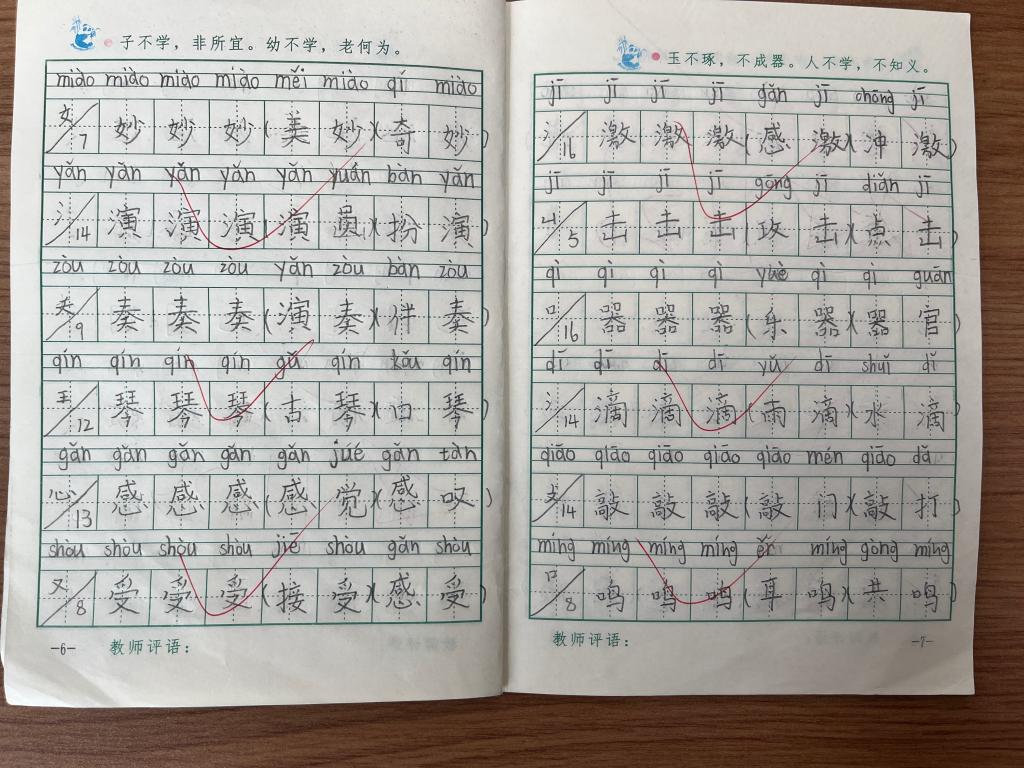 子不学，非所宜。幼不学，老何为。
miào miào miào miào měi miào qí miào
女 7 妙 妙 妙 (美 妙)(奇 妙)
yǎn yǎn yǎn yǎn yǎn yuán bàn yǎn
氵 14 演 演 演 (演 员)(扮 演)
zòu zòu zòu zòu yǎn zòu bàn zòu
9 奏 奏 奏 (演 奏)(伴 奏)
qín qín qín qín gǔ qín kǒu qín
王 12 琴 琴 琴 (古 琴)(口 琴)
gǎn gǎn gǎn gǎn gǎn jué gǎn tàn
心 13 感 感 感 (感 觉)(感 叹)
shòu shòu shòu shòu jiē shòu gǎn shòu
又 8 受 受 受 (接 受)(感 受)
-6- 教师评语：
玉不琢，不成器。人不学，不知义。
jī jī jī jī gǎn jī chōng jī
氵 16 激 激 激 (感 激)(冲 激)
jī jī jī jī gōng jī diǎn jī
凵 5 击 击 击 (攻 击)(点 击)
qì qì qì qì yuè qì qì guān
口 16 器 器 器 (乐 器)(器 官)
dī dī dī dī yǔ dī shuǐ dī
氵 14 滴 滴 滴 (雨 滴)(水 滴)
qiāo qiāo qiāo qiāo qiāo mén qiāo dǎ
支 14 敲 敲 敲 (敲 门)(敲 打)
míng míng míng míng ěr míng gòng míng
口 8 鸣 鸣 鸣 (耳 鸣)(共 鸣)
教师评语： -7-